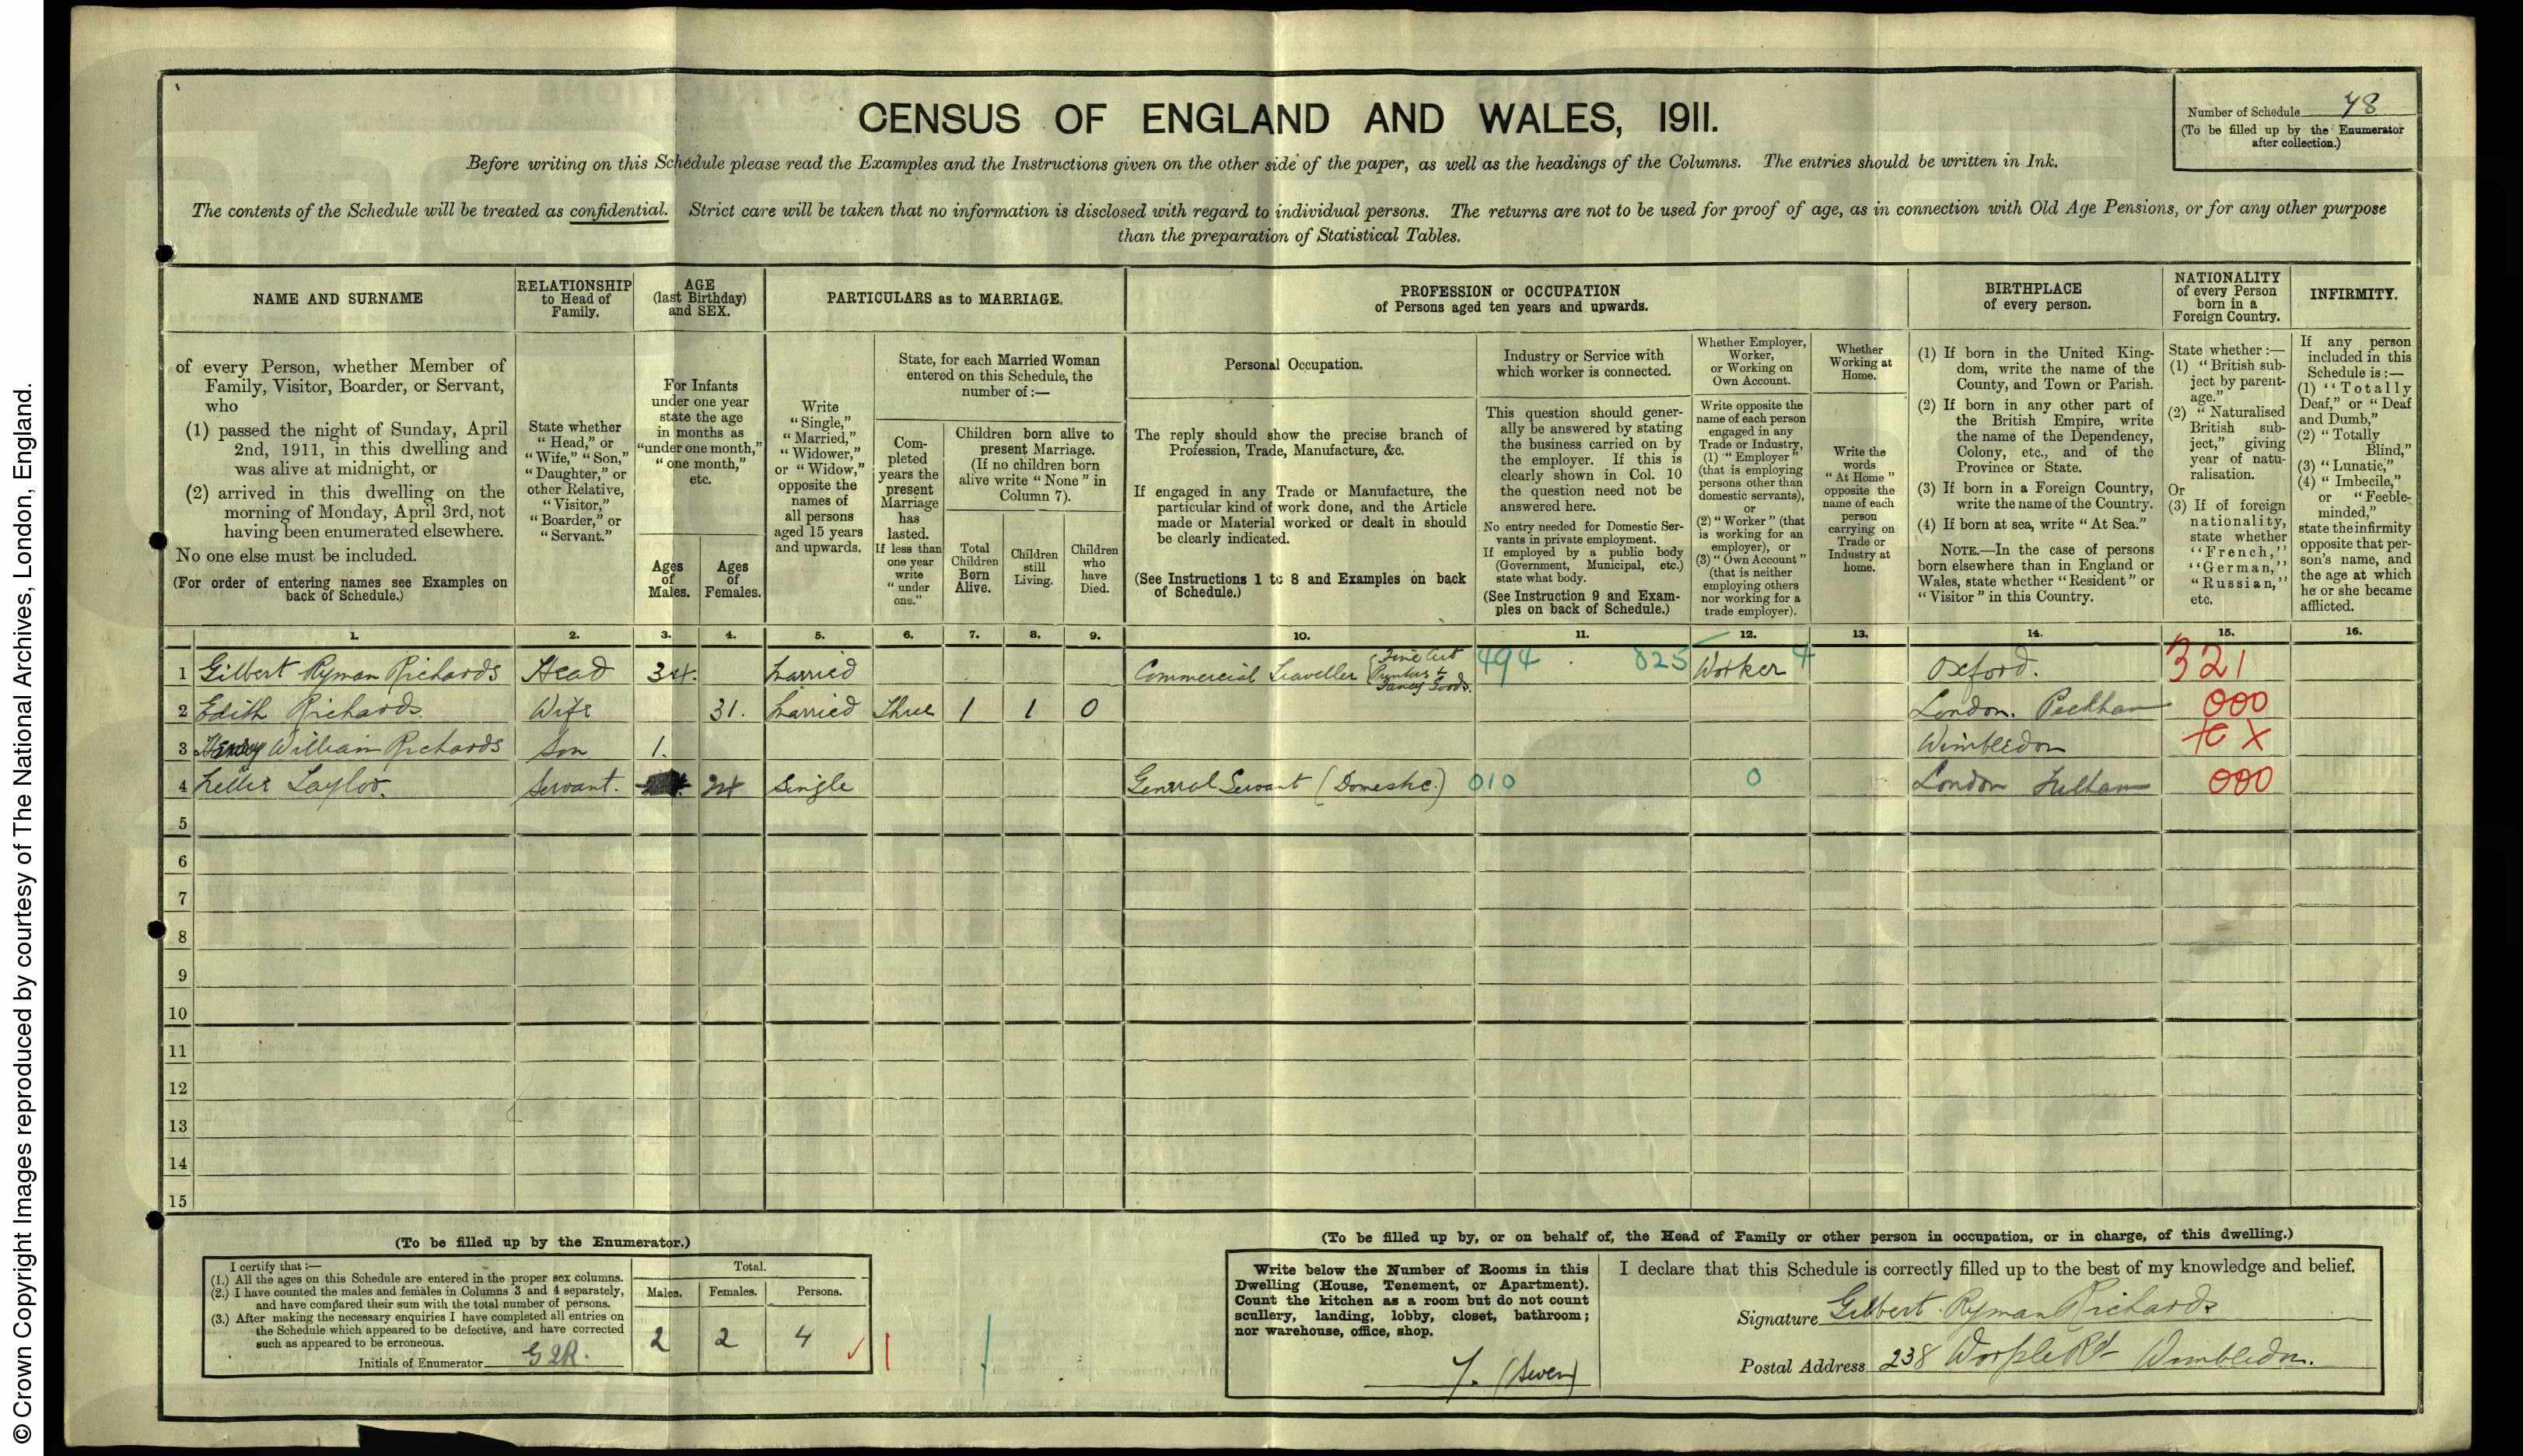 © Crown Copyright Images reproduced by courtesy of The National Archives, London, England.
CENSUS OF ENGLAND AND WALES, 1911.
Number of Schedule 78
(To be filled up by the Enumerator
after collection.)
Before writing on this Schedule please read the Examples and the Instructions given on the other side of the paper, as well as the headings of the Columns. The entries should be written in Ink.
The contents of the Schedule will be treated as confidential. Strict care will be taken that no information is disclosed with regard to individual persons. The returns are not to be used for proof of age, as in connection with Old Age Pensions, or for any other purpose
than the preparation of Statistical Tables.
NAME AND SURNAME
of every Person, whether Member of
Family, Visitor, Boarder, or Servant,
who
(1) passed the night of Sunday, April
2nd, 1911, in this dwelling and
was alive at midnight, or
(2) arrived in this dwelling on the
morning of Monday, April 3rd, not
having been enumerated elsewhere.
No one else must be included.
(For order of entering names see Examples on
back of Schedule.)
RELATIONSHIP
to Head of
Family.
State whether
"Head," or
"Wife," "Son,"
"Daughter," or
other Relative,
"Visitor,"
"Boarder," or
"Servant."
AGE
(last Birthday)
and SEX.
For Infants
under one year
state the age
in months as
"under one month,"
"one month,"
etc.
Ages
of
Males.
Ages
of
Females.
PARTICULARS as to MARRIAGE.
Write
"Single,"
"Married,"
"Widower,"
or "Widow,"
opposite the
names of
all persons
aged 15 years
and upwards.
State, for each Married Woman
entered on this Schedule, the
number of:—
Com-
pleted
years the
present
Marriage
has
lasted.
If less than
one year
write
"under
one."
Children born alive to
present Marriage.
(If no children born
alive write "None" in
Column 7).
Total
Children
Born
Alive.
Children
still
Living.
Children
who
have
Died.
PROFESSION or OCCUPATION
of Persons aged ten years and upwards.
Personal Occupation.
The reply should show the precise branch of
Profession, Trade, Manufacture, &c.
If engaged in any Trade or Manufacture, the
particular kind of work done, and the Article
made or Material worked or dealt in should
be clearly indicated.
(See Instructions 1 to 8 and Examples on back
of Schedule.)
Industry or Service with
which worker is connected.
This question should gener-
ally be answered by stating
the business carried on by
the employer. If this is
clearly shown in Col. 10
the question need not be
answered here.
No entry needed for Domestic Ser-
vants in private employment.
If employed by a public body
(Government, Municipal, etc.)
state what body.
(See Instruction 9 and Exam-
ples on back of Schedule.)
Whether Employer,
Worker,
or Working on
Own Account.
Write opposite the
name of each person
engaged in any
Trade or Industry,
(1) "Employer"
(that is employing
persons other than
domestic servants),
or
(2) "Worker" (that
is working for an
employer), or
(3) "Own Account"
(that is neither
employing others
nor working for a
trade employer).
Whether
Working at
Home.
Write the
words
"At Home"
opposite the
name of each
person
carrying on
Trade or
Industry at
home.
BIRTHPLACE
of every person.
(1) If born in the United King-
dom, write the name of the
County, and Town or Parish.
(2) If born in any other part of
the British Empire, write
the name of the Dependency,
Colony, etc., and of the
Province or State.
(3) If born in a Foreign Country,
write the name of the Country.
(4) If born at sea, write "At Sea."
NOTE.—In the case of persons
born elsewhere than in England or
Wales, state whether "Resident" or
"Visitor" in this Country.
NATIONALITY
of every Person
born in a
Foreign Country.
State whether:—
(1) "British sub-
ject by parent-
age."
(2) "Naturalised
British sub-
ject," giving
year of natu-
ralisation.
Or
(3) If of foreign
nationality,
state whether
"French,"
"German,"
"Russian,"
etc.
INFIRMITY.
If any person
included in this
Schedule is:—
(1) "Totally
Deaf," or "Deaf
and Dumb,"
(2) "Totally
Blind,"
(3) "Lunatic,"
(4) "Imbecile,"
or "Feeble-
minded,"
state the infirmity
opposite that per-
son's name, and
the age at which
he or she became
afflicted.
1. 2. 3. 4. 5. 6. 7. 8. 9. 10. 11. 12. 13. 14. 15. 16.
1 Gilbert Ryman Richards Head 34. Married Commercial Traveller Fine Art Printers & Fancy Goods. 494 825 Worker 4 Oxford. 321
2 Edith Richards Wife 31. Married Three 1 1 0 London. Peckham 000
3 William Richards Son 1. Wimbledon
4 Nellie Taylor. Servant. 24 Single General Servant (Domestic.) 010 0 London Fulham 000
5
6
7
8
9
10
11
12
13
14
15
(To be filled up by the Enumerator.)
I certify that:—
(1.) All the ages on this Schedule are entered in the proper sex columns.
(2.) I have counted the males and females in Columns 3 and 4 separately,
and have compared their sum with the total number of persons.
(3.) After making the necessary enquiries I have completed all entries on
the Schedule which appeared to be defective, and have corrected
such as appeared to be erroneous.
Initials of Enumerator
Total.
Males. Females. Persons.
2 2 4
(To be filled up by, or on behalf of, the Head of Family or other person in occupation, or in charge, of this dwelling.)
Write below the Number of Rooms in this
Dwelling (House, Tenement, or Apartment).
Count the kitchen as a room but do not count
scullery, landing, lobby, closet, bathroom;
nor warehouse, office, shop.
7. (Seven)
I declare that this Schedule is correctly filled up to the best of my knowledge and belief.
Signature Gilbert Ryman Richards
Postal Address 238 Worple Rd Wimbledon.